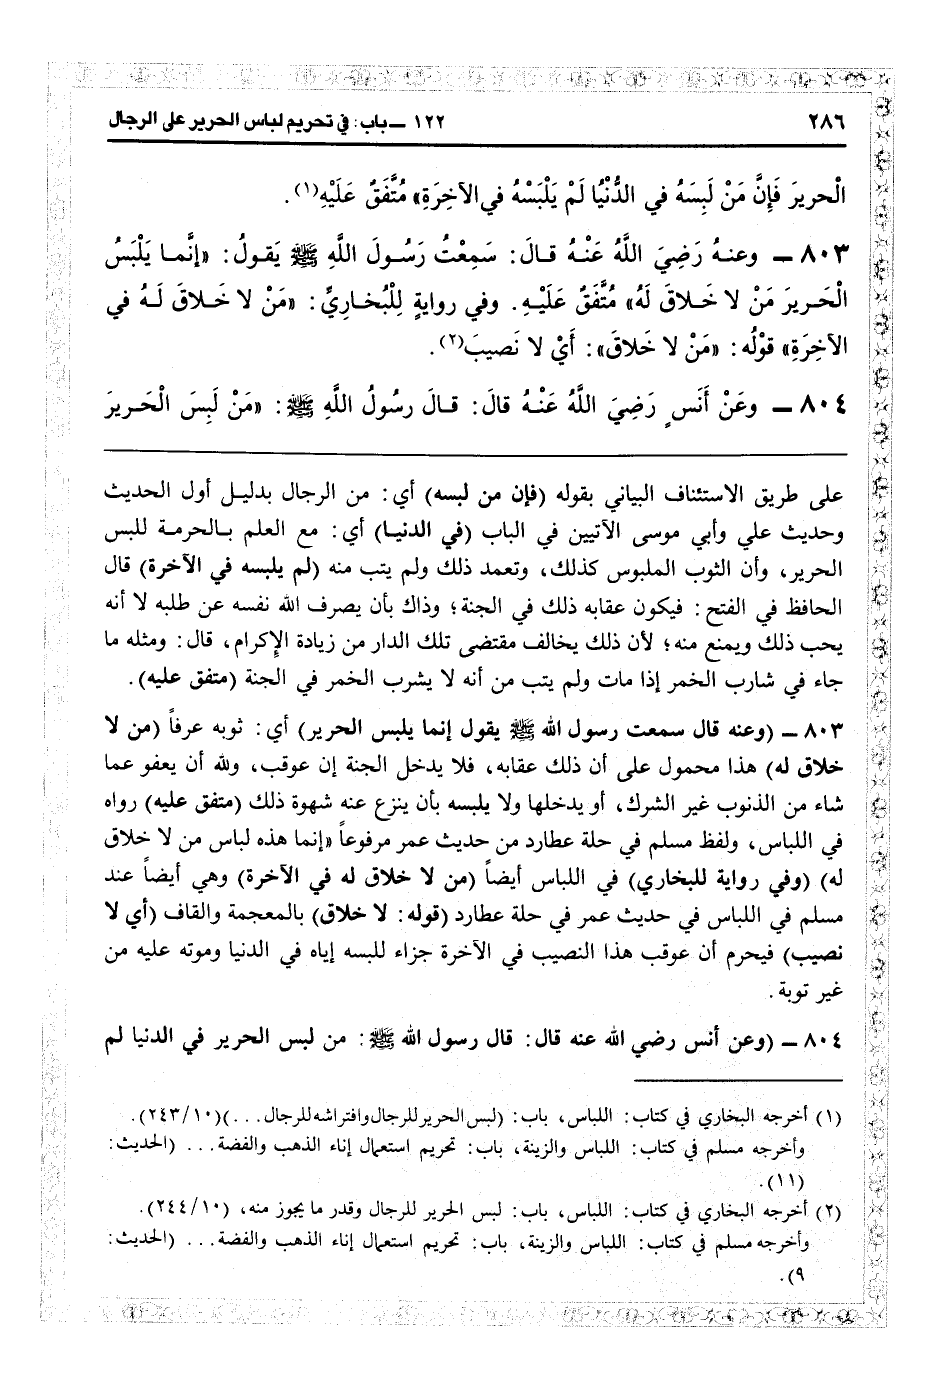 ٢٨٦
١٢٢ ـ باب: في تحريم لباس الحرير على الرجال
الْحريرَ فَإِنَّ مَنْ لَبِسَهُ في الدُّنْيَا لَمْ يَلْبَسْهُ في الآخِرَةِ» مُتَّفَقٌ عَلَيْهِ(١).
٨٠٣ ـ وعنهُ رَضِيَ اللَّهُ عَنْهُ قالَ: سَمِعْتُ رَسُولَ اللَّهِ ﷺ يَقولُ: «إنَّما يَلْبَسُ
الْحَريرَ مَنْ لا خَلاقَ لَهُ» مُتَّفَقٌ عَلَيْهِ. وفي روايةٍ لِلْبُخاريِّ: «مَنْ لا خَلاقَ لَهُ في
الآخِرَةِ» قوْلُه: «مَنْ لا خَلاقَ»: أَيْ لا نَصيبَ(٢).
٨٠٤ ـ وعَنْ أَنَسٍ رَضِيَ اللَّهُ عَنْهُ قالَ: قالَ رسُولُ اللَّهِ ﷺ: «مَنْ لَبِسَ الْحَريرَ
على طريق الاستئناف البياني بقوله (فإن من لبسه) أي: من الرجال بدليل أول الحديث
وحديث علي وأبي موسى الآتيين في الباب (في الدنيا) أي: مع العلم بالحرمة للبس
الحرير، وأن الثوب الملبوس كذلك، وتعمد ذلك ولم يتب منه (لم يلبسه في الآخرة) قال
الحافظ في الفتح: فيكون عقابه ذلك في الجنة؛ وذاك بأن يصرف الله نفسه عن طلبه لا أنه
يحب ذلك ويمنع منه؛ لأن ذلك يخالف مقتضى تلك الدار من زيادة الإكرام، قال: ومثله ما
جاء في شارب الخمر إذا مات ولم يتب من أنه لا يشرب الخمر في الجنة (متفق عليه).
٨٠٣ ـ (وعنه قال سمعت رسول الله ﷺ يقول إنما يلبس الحرير) أي: ثوبه عرفاً (من لا
خلاق له) هذا محمول على أن ذلك عقابه، فلا يدخل الجنة إن عوقب، ولله أن يعفو عما
شاء من الذنوب غير الشرك، أو يدخلها ولا يلبسه بأن ينزع عنه شهوة ذلك (متفق عليه) رواه
في اللباس، ولفظ مسلم في حلة عطارد من حديث عمر مرفوعاً «إنما هذه لباس من لا خلاق
له) (وفي رواية للبخاري) في اللباس أيضاً (من لا خلاق له في الآخرة) وهي أيضاً عند
مسلم في اللباس في حديث عمر في حلة عطارد (قوله: لا خلاق) بالمعجمة والقاف (أي لا
نصيب) فيحرم أن عوقب هذا النصيب في الآخرة جزاء للبسه إياه في الدنيا وموته عليه من
غير توبة.
٨٠٤ ـ (وعن أنس رضي الله عنه قال: قال رسول الله ﷺ: من لبس الحرير في الدنيا لم
(١) أخرجه البخاري في كتاب: اللباس، باب: (لبس الحرير للرجال وافتراشه للرجال...)(٢٤٣/١٠).
وأخرجه مسلم في كتاب: اللباس والزينة، باب: تحريم استعمال إناء الذهب والفضة... (الحديث:
١١).
(٢) أخرجه البخاري في كتاب: اللباس، باب: لبس الحرير للرجال وقدر ما يجوز منه، (٢٤٤/١٠).
وأخرجه مسلم في كتاب: اللباس والزينة، باب: تحريم استعمال إناء الذهب والفضة... (الحديث:
٩).